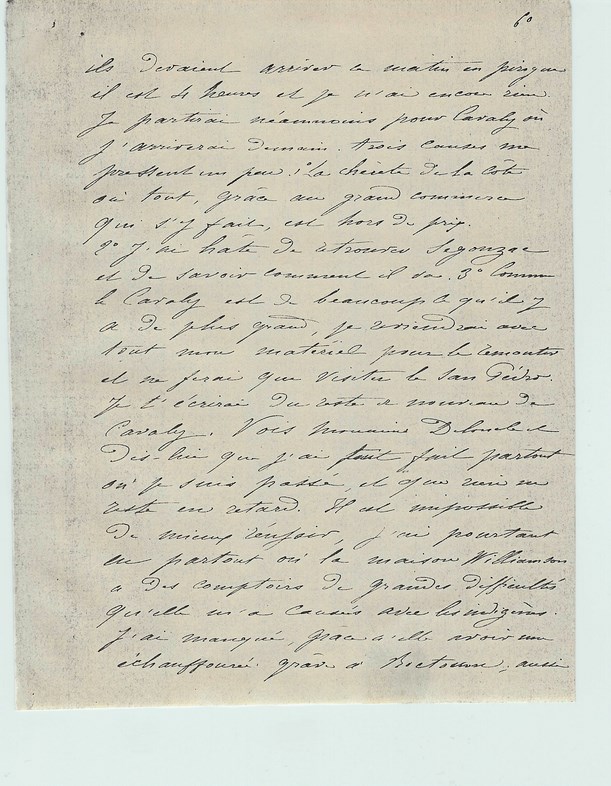 60
ils devaient arriver ce matin en pirogue
il est 4 heures et je n'ai encore rien.
Je partirai néanmoins pour Cavaly où
j'arriverai demain. trois causes me
pressent un peu : 1° La chèreté de la côte
où tout, grâce au grand commerce
qui s'y fait, est hors de prix.
2° J'ai hate de retrouver Segonzac
et de savoir comment il va. 3° Comme
le Cavaly est de beaucoup ce qu'il y
a de plus grand, je reviendrai avec
tout mon matériel pour le remonter
et ne ferai que visiter le San Pédro.
Je t'écrirai du reste de nouveau de
Cavaly. Vois monsieur
dis-lui que j'ai tout fait partout
où je suis passé, et que rien ne
reste en retard. Il est impossible
de mieux réussir, j'ai pourtant
eu partout où la maison Williamson
a des comptoirs de grandes difficultés
qu'elle m'a causés avec les indigènes.
J'ai manqué, grace à elle avoir une
échauffourée grave à aussi